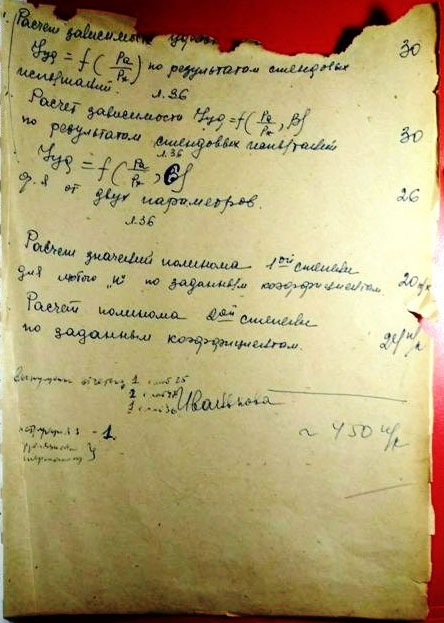 Расчет зависимости
Jуд = f (Pa/Pк) по результатам стендовых 30
испытаний.
л.36
Расчет зависимости Jуд = f (Pa/Pк, β)
по результатам стендовых испытаний 30
л.36
Jуд = f (Pa/Pк, β)
ф.я от двух параметров. 26
л.36
Расчет значений полинома 1ой степени
для любого "н" по заданным коэффициентам. 20
Расчет полинома 2ой степени
по заданным коэффициентам.
1
2
1
Иванькова
- 1.
~ 450